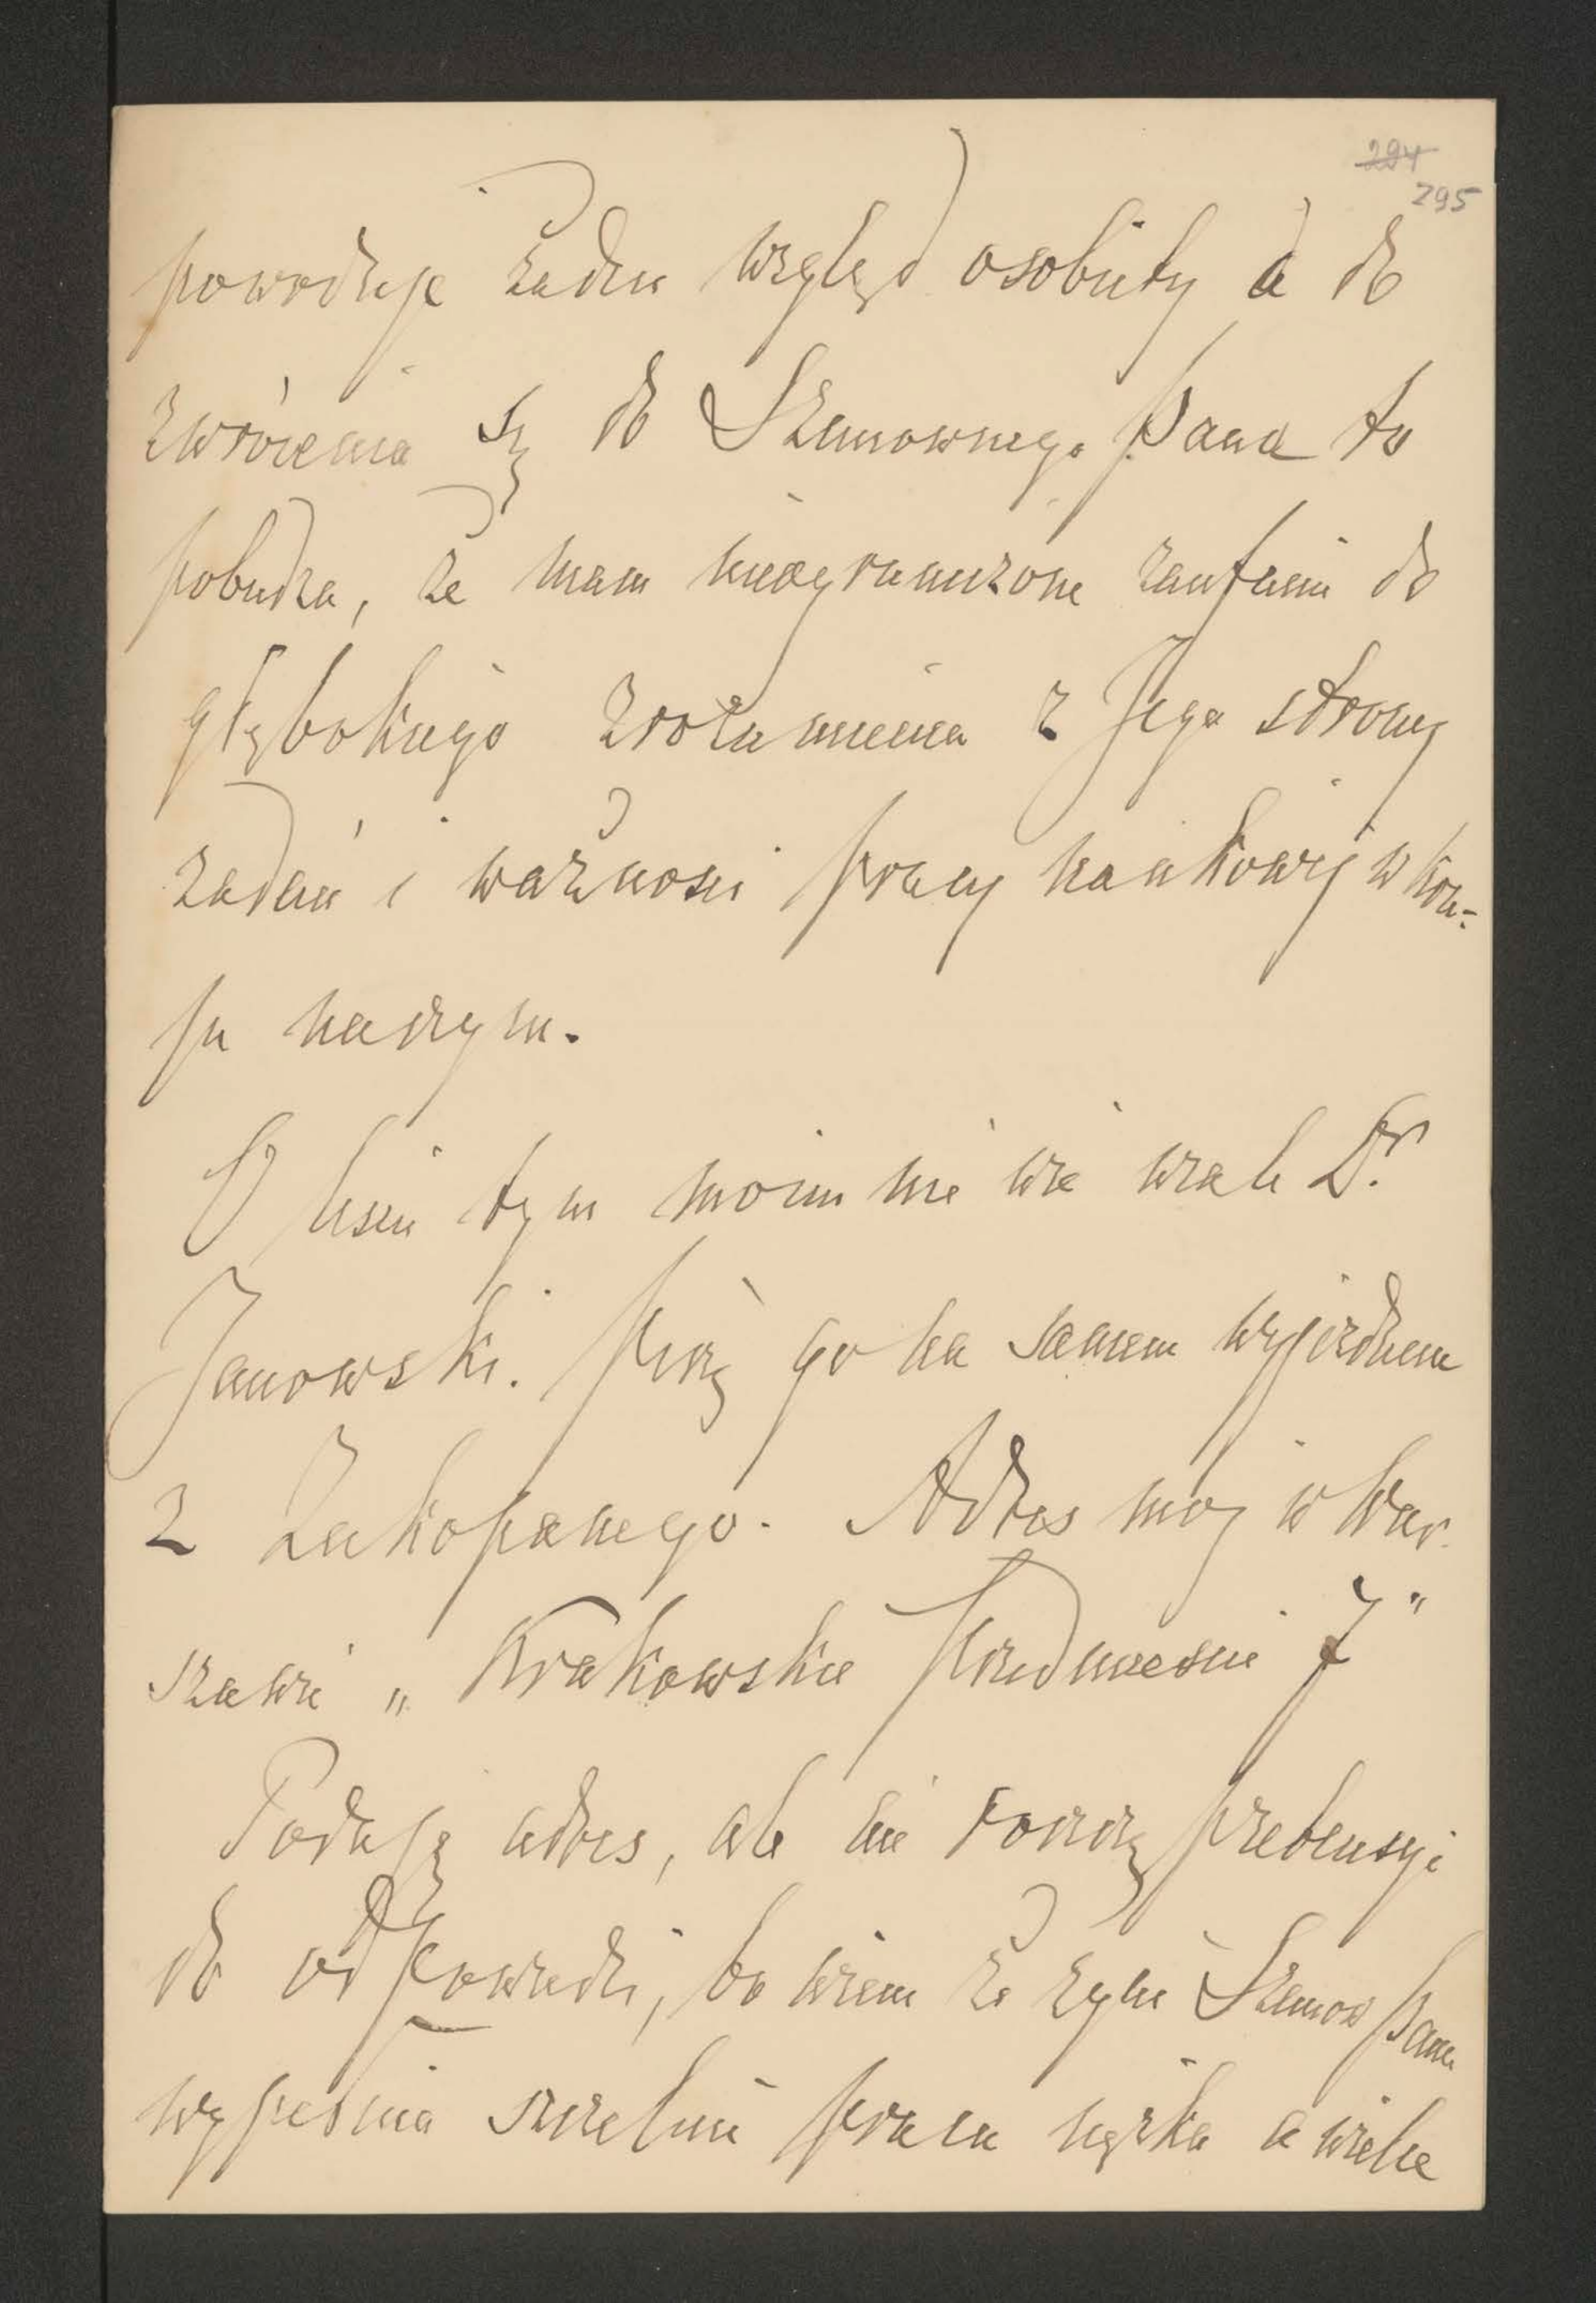 294
295
powoduje żaden wzgląd osobisty a do
zwrócenia się do Szanownego Pana to
pobudza, że mam nieograniczone zaufanie do
głębokiego zrozumienia z Jego strony
zadań i ważności pracy naukowej w kra-
ju naszym.
O liście tym moim nie wie wcale Dr.
Janowski. Piszę go na samem wyjezdnem
z Zakopanego. Adres mój w War-
szawie „Krakowskie Przedmieście 7"
Podaję adres, ale nie roszczę pretensyi
do odpowiedzi, bo wiem że życie Szanow Pana
wypełnia szczelnie praca ciężka a wielce